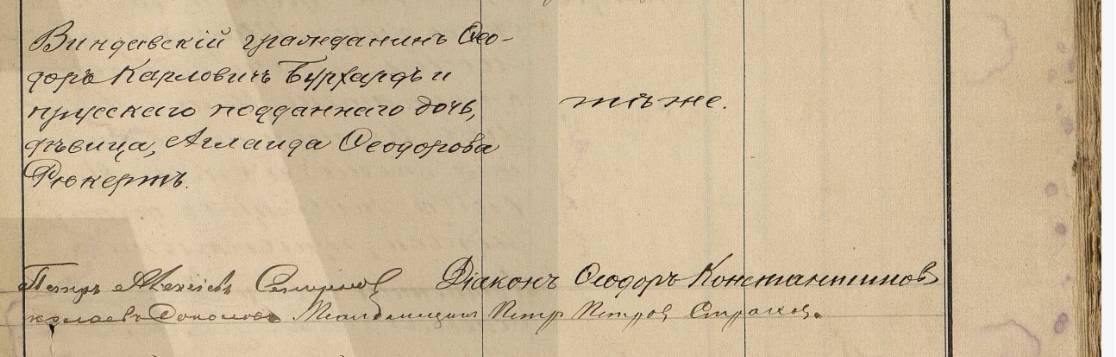 Виндавскій гражданинъ Ѳео-
доръ Карловичъ Бурхардъ и
прусскаго подданнаго дочь,
тѣже.
дѣвица, Аглаида Ѳеодорова
Рюкертъ.
Петръ Алексіевъ Смирновъ Діаконъ Ѳеодоръ Константиновъ
Соколовъ Псаломщикъ Петръ Петровъ Страховъ.